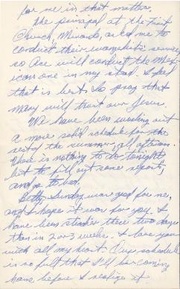 for me in that matter.
The principal at the First
Church, Miranda, asked me to
conduct their evangelistic services,
so Ace will conduct the Mex-
ican one in my stead. I feel
that is best. So pray that
many will trust our Jesus.
We have been working out
a more solid schedule for the
rest of the summer, all afternoon.
There is nothing to do tonight
but to fill out some reports,
and go to bed.
Sunday was good for me,
and I hope it was for you. I
have been studying these two days
than in 2 or 3 weeks. I love you
with all my heart. Our schedule
is so full that I'll be coming
home before I realize it